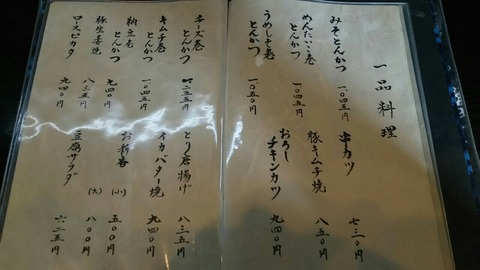 一品料理
みそとんかつ 一、〇四五円
めんたいこ巻とんかつ 一、〇四五円
うめしそ巻とんかつ 一、〇五〇円
串カツ 七三〇円
豚キムチ焼 八五〇円
おろしチキンカツ 九四〇円
チーズ巻とんかつ
キムチ巻とんかつ 一、〇四五円
納豆巻とんかつ 九四〇円
豚生姜焼 八三五円
ロースピカタ 九四〇円
とり唐揚げ 八三五円
イカバター焼 九四〇円
お新香 (小) 五〇〇円
(大) 八〇〇円
豆腐サラダ 六二五円